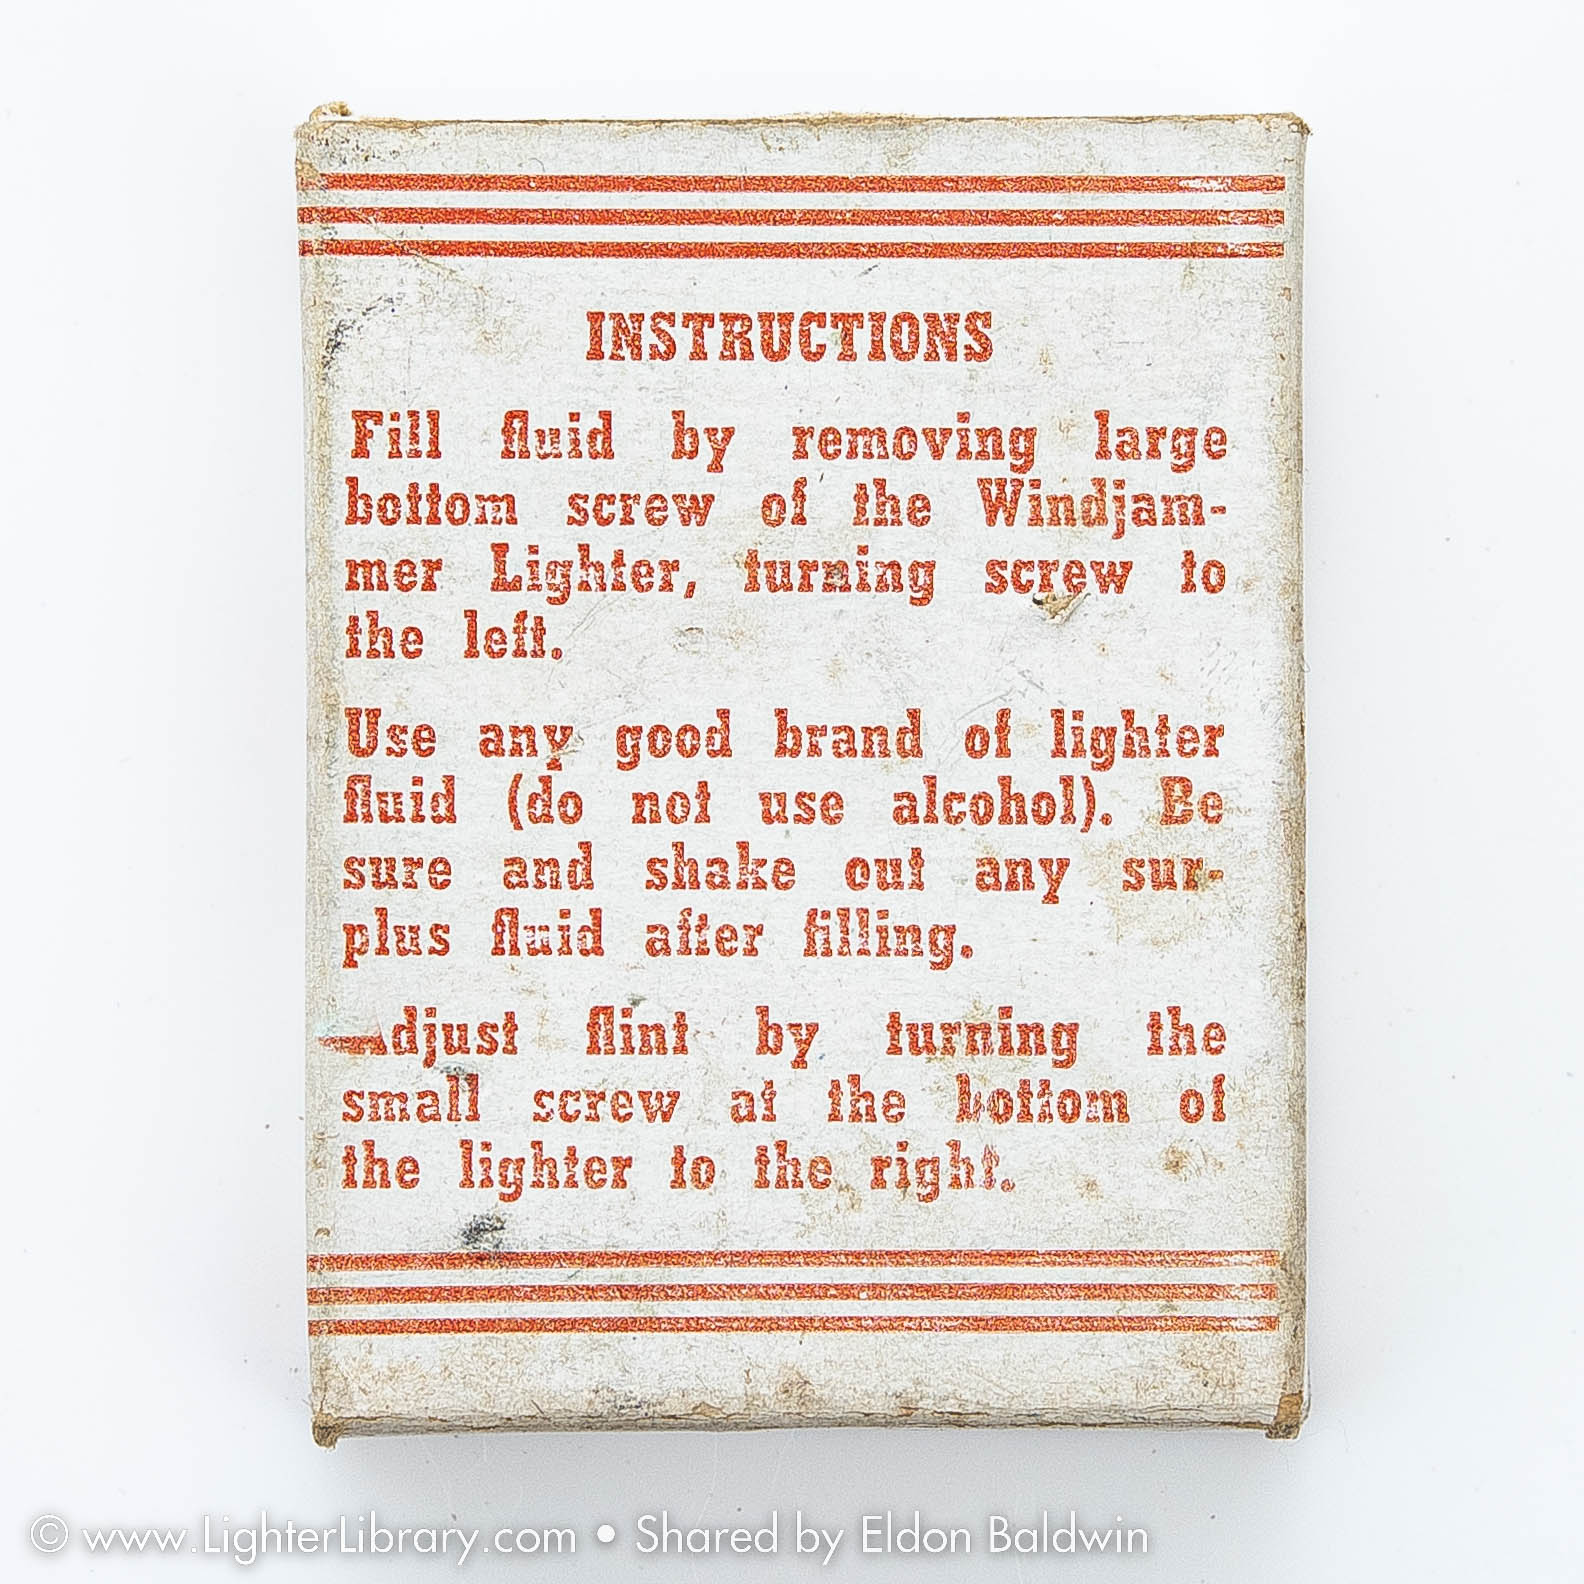 INSTRUCTIONS
Fill fluid by removing large
bottom screw of the Windjam-
mer Lighter, turning screw to
the left.
Use any good brand of lighter
fluid (do not use alcohol). Be
sure and shake out any sur-
plus fluid after filling.
Adjust flint by turning the
small screw at the bottom of
the lighter to the right.
© www.LighterLibrary.com • Shared by Eldon Baldwin